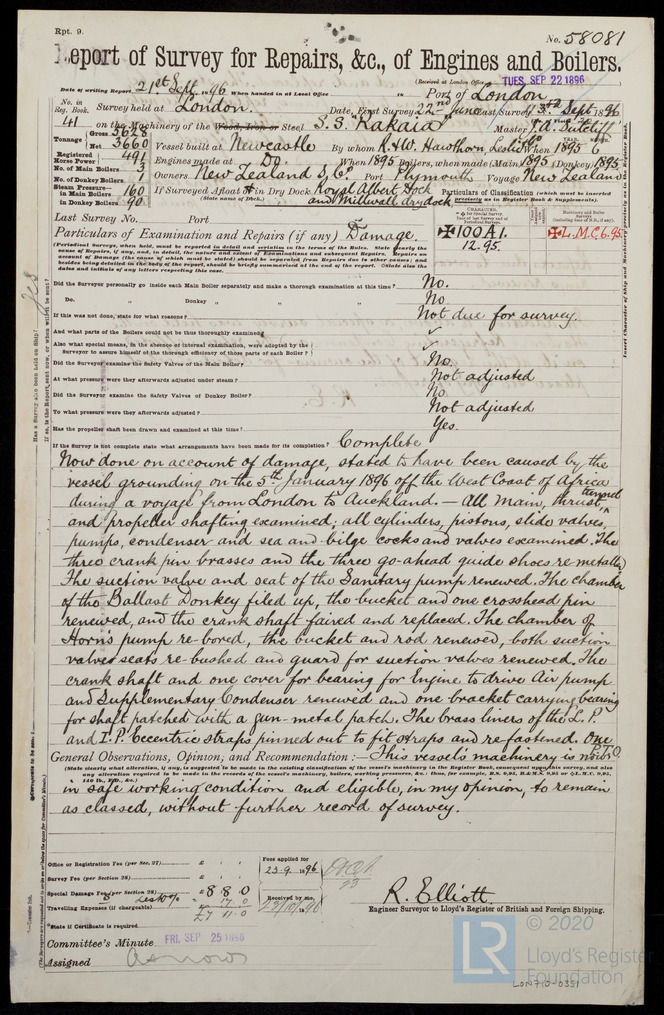 Rpt. 9.
No. 58081
Report of Survey for Repairs, &c., of Engines and Boilers.
(Received at London Office TUES. SEP 22 1896
Date of writing Report 21st Sept 1896 When handed in at Local Office Port of London
No. in Reg. Book. 41 Survey held at London. Date, First Survey 22nd June Last Survey 3rd Sept 1896
on the Machinery of the Wood, Iron or Steel S.S. "Rakaia" Master J. A. Sutcliff
Tonnage Gross 5628 Net 3660
Vessel built at Newcastle By whom R. & W. Hawthorn, Leslie & Co When 1895 6
Registered Horse Power 491 Engines made at Do. When 1895 Boilers, when made (Main) 1895 (Donkey) 1895
No. of Main Boilers 3 Owners New Zealand S. Co. Port Plymouth Voyage New Zealand
No. of Donkey Boilers 1
Steam Pressure in Main Boilers 160 If Surveyed Afloat or in Dry Dock Royal Albert Dock
in Donkey Boilers 90 (State name of Dock.) and Millwall dry dock
Particulars of Classification (which must be inserted precisely as in Register Book & Supplements).
Last Survey No. Port
Particulars of Examination and Repairs (if any) Damage.
✠100A1. 12.95.
✠L.M.C. 6.95.
(Periodical Surveys, when held, must be reported in detail and seriatim in the terms of the Rules. State clearly the cause of Repairs, if any, and, in detail, the nature and extent of Examinations and subsequent Repairs. Repairs on account of Damage (the cause of which must be stated) should be separated from Repairs due to other causes; and besides being detailed in the body of the report, should be briefly summarised at the end of the report. State also the dates and initials of any letters respecting this case.
Did the Surveyor personally go inside each Main Boiler separately and make a thorough examination at this time? No.
Do. " Donkey " " " " No
If this was not done, state for what reasons? Not due for survey.
And what parts of the Boilers could not be thus thoroughly examined? ✓
Also what special means, in the absence of internal examination, were adopted by the
Surveyor to assure himself of the thorough efficiency of those parts of each Boiler? ✓
Did the Surveyor examine the Safety Valves of the Main Boiler? No.
At what pressure were they afterwards adjusted under steam? Not adjusted
Did the Surveyor examine the Safety Valves of Donkey Boiler? No
To what pressure were they afterwards adjusted? Not adjusted
Has the propeller shaft been drawn and examined at this time? Yes.
If the Survey is not complete state what arrangements have been made for its completion? Complete
Now done on account of damage, stated to have been caused by the
vessel grounding on the 5th January 1896 off the West Coast of Africa
during a voyage from London to Auckland. — All main, thrust, tunnel
and propeller shafting examined, all cylinders, pistons, slide valves,
pumps, condenser and sea and bilge cocks and valves examined. The
three crank pin brasses and the three go-ahead guide shoes re-metalled
The suction valve and seat of the Sanitary pump renewed. The chamber
of the Ballast Donkey filed up, the bucket and one crosshead pin
renewed, and the crank shaft faired and replaced. The chamber of
Horn's pump re-bored, the bucket and rod renewed, both suction
valve seats re-bushed and guard for suction valves renewed. The
crank shaft and one cover for bearing for Engine to drive Air pump
and Supplementary Condenser renewed and one bracket carrying bearing
for shaft patched with a gun-metal patch. The brass liners of the L.P.
and I.P. Eccentric straps pinned out to fit straps and re-fastened. One
P.T.O.
General Observations, Opinion, and Recommendation:— This vessel's machinery is now
in safe working condition and eligible, in my opinion, to remain
as classed, without further record of survey.
Office or Registration Fee (per Sec. 27) £ : :
Survey Fee (per Section 28) £ : :
Special Damage Fee (per Section 28) £8 8 0
Less 10% 17 0
Travelling Expenses (if chargeable) £7 11 0
State if Certificate is required
Fees applied for 23.9.1896
Received by me,
R. Elliott
Engineer Surveyor to Lloyd's Register of British and Foreign Shipping.
Committee's Minute FRI. SEP 25 1896
Assigned As now
© 2020
LR Lloyd's Register Foundation
LON710-0351